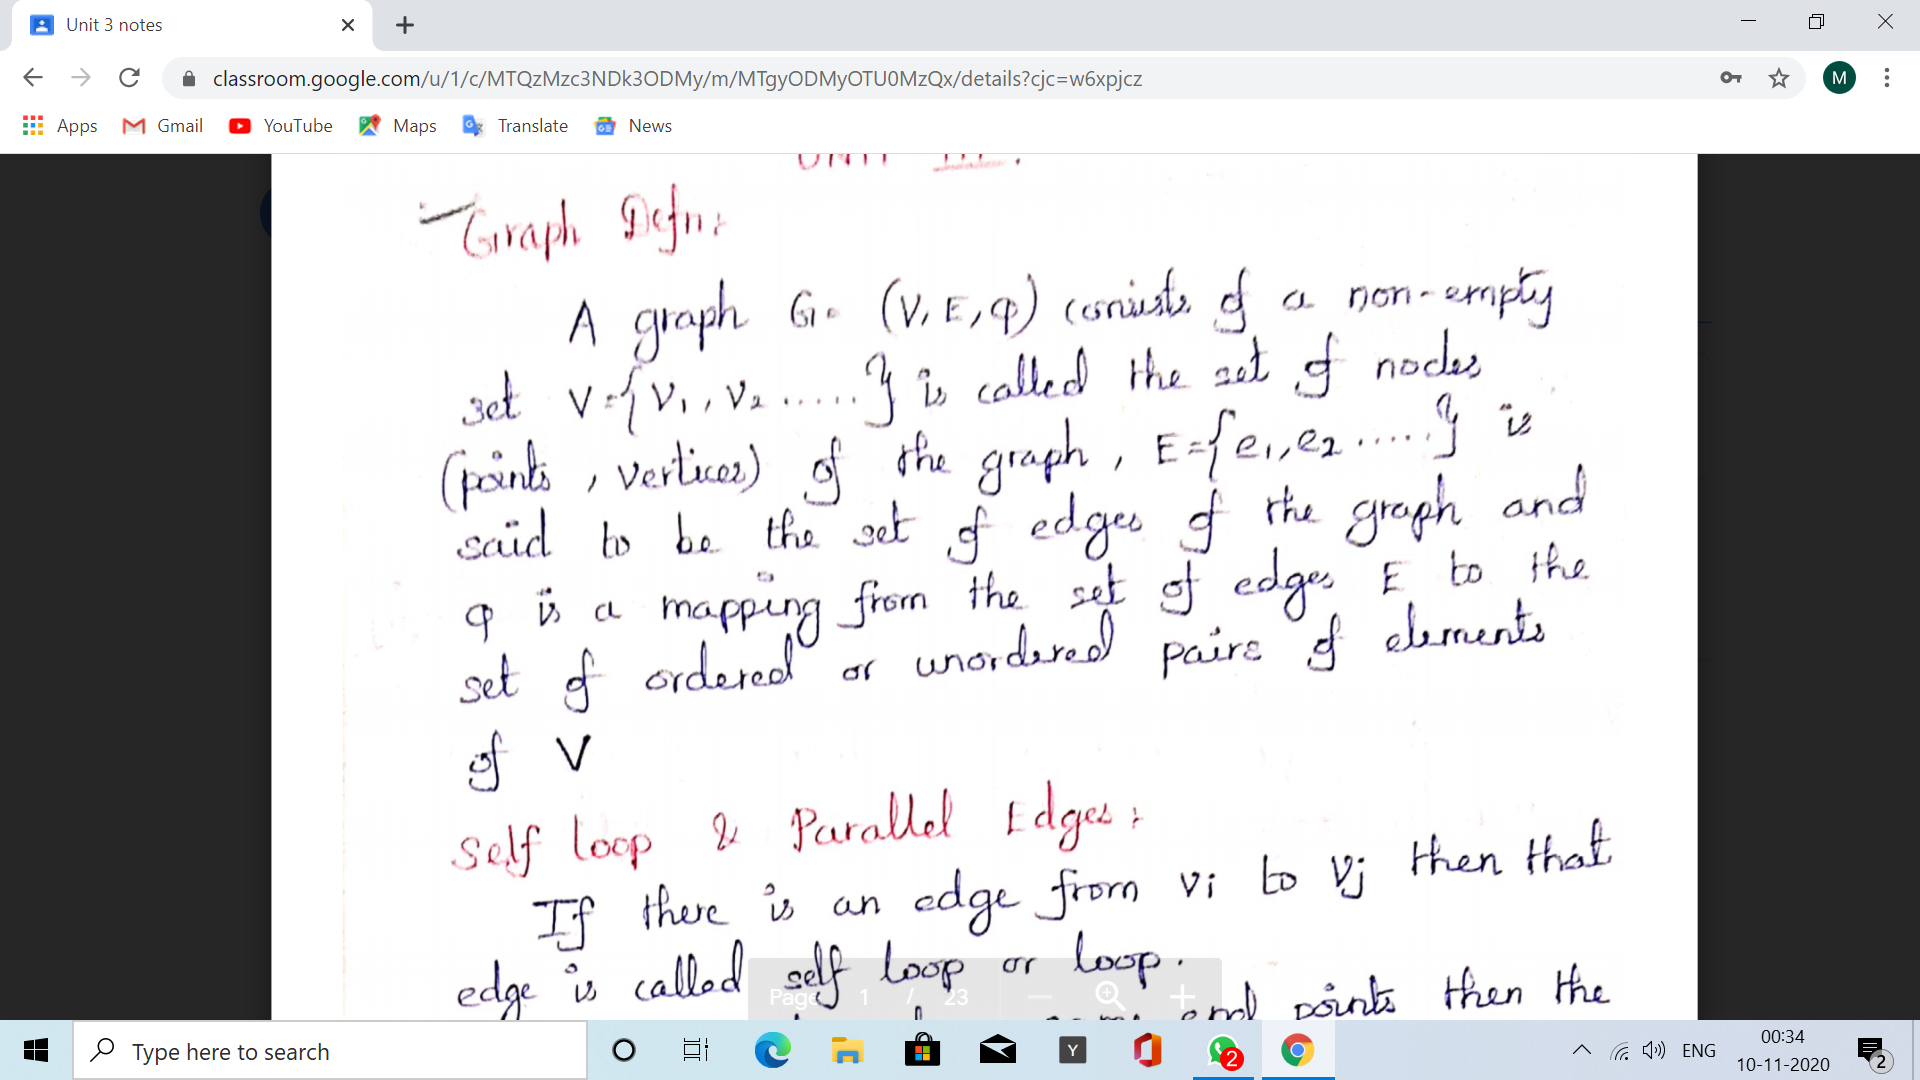 Unit 3 notes
classroom.google.com/u/1/c/MTQzMzc3NDk3ODMy/m/MTgyODMyOTU0MzQx/details?cjc=w6xpjcz
M
Apps Gmail YouTube Maps Translate News
UNIT III.
Graph Defn:
A graph G = (V, E, φ) consists of a non-empty
set V = {V1, V2 .....} is called the set of nodes
(points, vertices) of the graph, E = {e1, e2 .....} is
said to be the set of edges of the graph and
φ is a mapping from the set of edges E to the
set of ordered or unordered pairs of elements
of V
Self loop & Parallel Edges:
If there is an edge from vi to vj then that
edge is called self loop or loop.
Page 1 / 23
end points then the
Type here to search
Y
2
ENG
00:34
10-11-2020
2